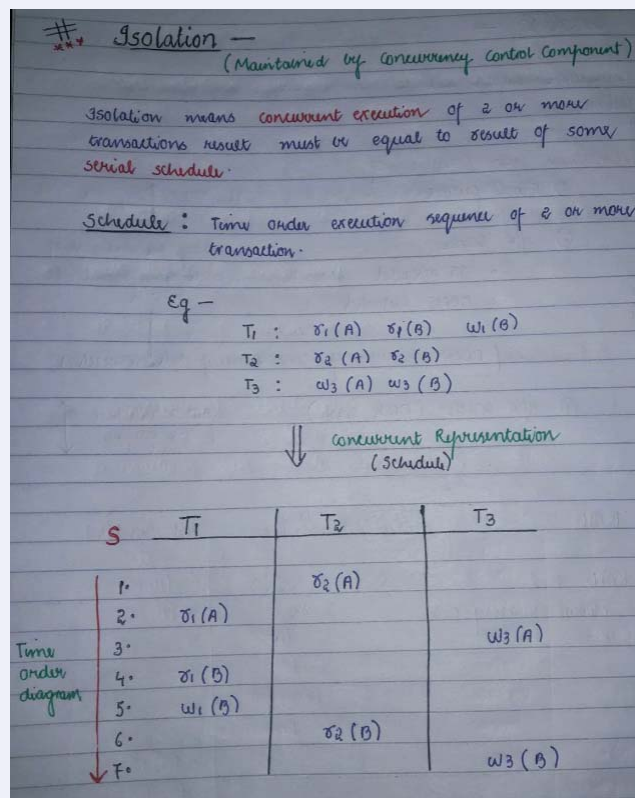 # Isolation —
(Maintained by Concurrency Control Component)
Isolation means concurrent execution of 2 or more
transactions result must be equal to result of some
serial schedule.
Schedule : Time order execution sequence of 2 or more
transaction.
Eg —
T1 : r1(A) r1(B) w1(B)
T2 : r2(A) r2(B)
T3 : w3(A) w3(B)
Concurrent Representation
(Schedule)
S T1 T2 T3
1. r2(A)
2. r1(A)
3. w3(A)
Time
order
diagram
4. r1(B)
5. w1(B)
6. r2(B)
7. w3(B)